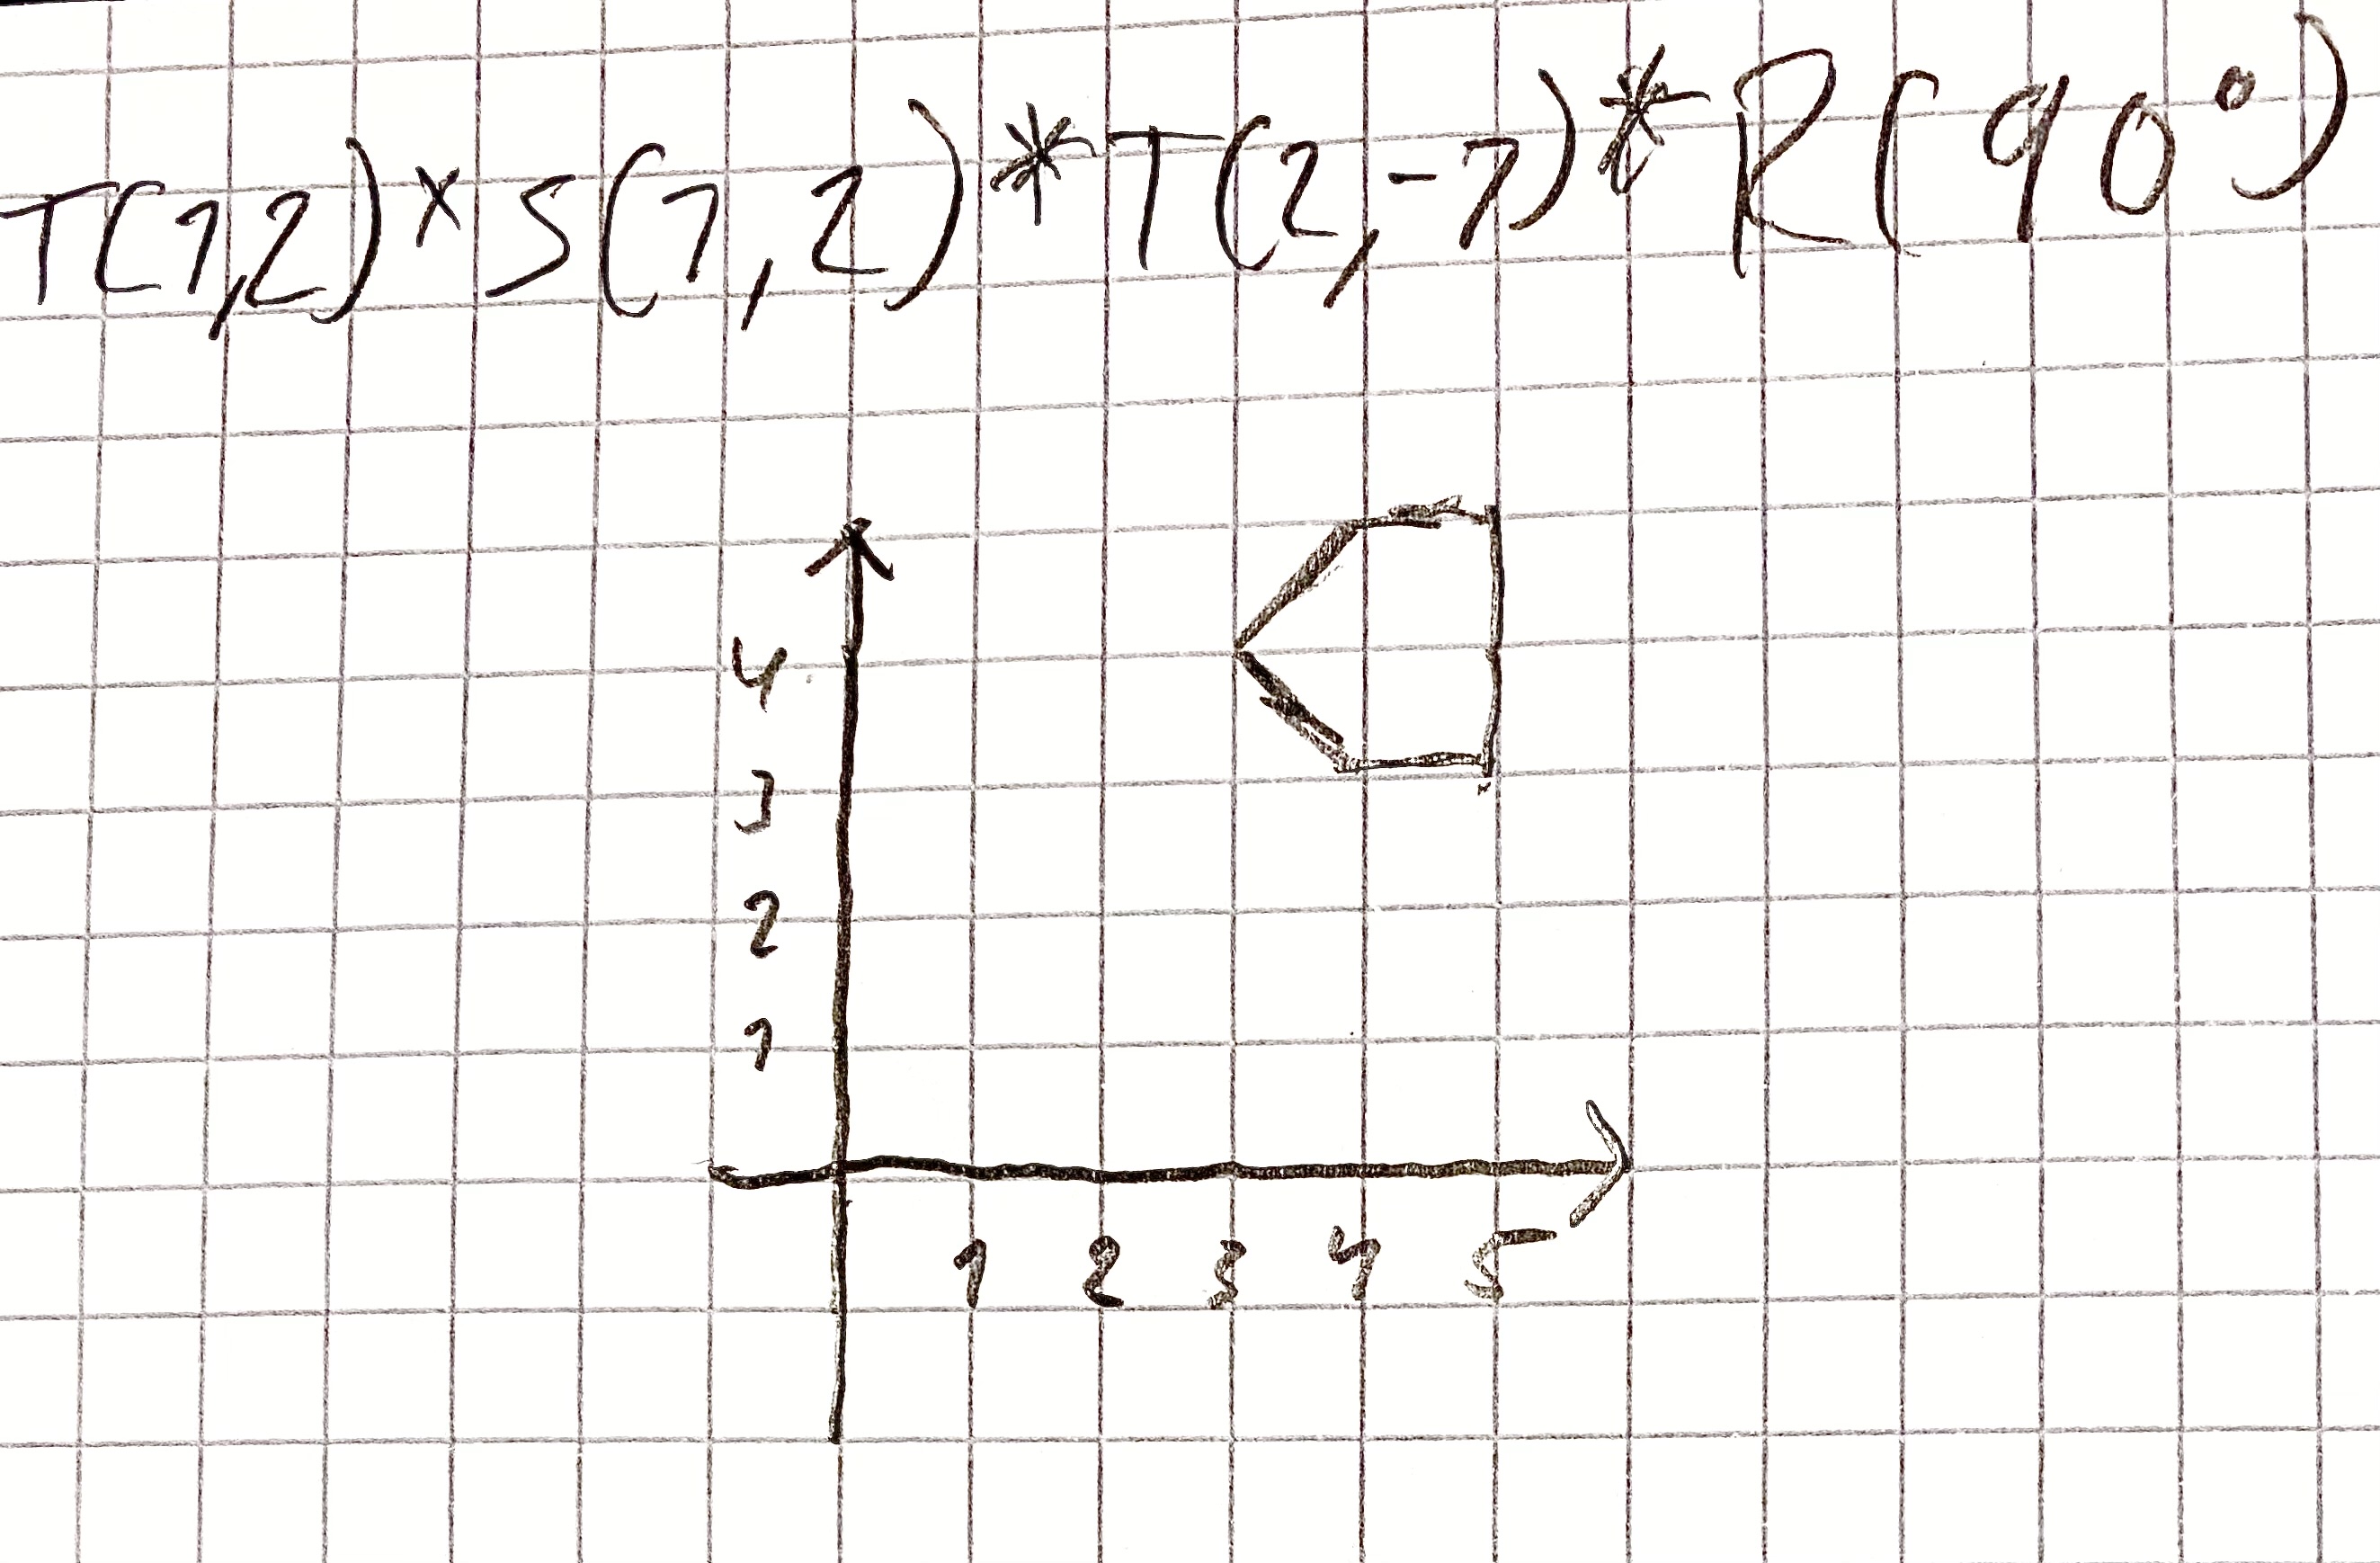 T(1,2)×S(1,2)*T(2,-1)*R(90°)
4
3
2
1
1 2 3 4 5